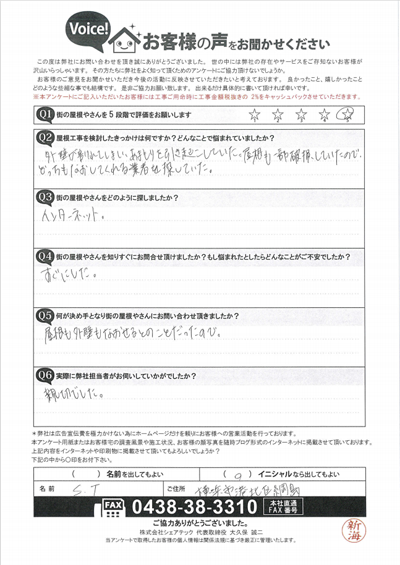 Voice!
お客様の声をお聞かせください
この度は弊社にお問い合わせを頂き誠にありがとうございました。世の中には弊社の存在やサービスをご存知ないお客様が
沢山いらっしゃいます。その方たちに弊社をよく知って頂くためのアンケートにご協力頂けないでしょうか。
お客様のご意見をお聞かせいただき今後の活動に反映させていただきたいと考えております。良かったこと、嬉しかったこと
どのような些細な事でも結構です。是非ご協力お願い致します。出来るだけ具体的に書いて頂ければ幸いです。
※本アンケートにご記入いただいたお客様には工事ご用命時に工事金額税抜きの 2%をキャッシュバックさせていただきます。
Q1 街の屋根やさんを5段階で評価をお願いします
☆ ☆ ☆ ☆ ☆
Q2 屋根工事を検討したきっかけは何ですか?どんなことで悩まれていましたか?
外壁が割れてしまい、あまもりを引きおこしていた。屋根も一部破損していたので、
どっちもなおしてくれる業者を探していた。
Q3 街の屋根やさんをどのように探しましたか?
インターネット。
Q4 街の屋根やさんを知りすぐにお問合せ頂けましたか?もし悩まれたとしたらどんなことがご不安でしたか?
すぐにした。
Q5 何が決め手となり街の屋根やさんにお問い合わせ頂きましたか?
屋根も外壁もなおせるとのことだったので。
Q6 実際に弊社担当者がお伺いしていかがでしたか?
親切でした。
*弊社は広告宣伝費を極力かけない為にホームページだけを頼りにお客様への営業活動を行っております。
本アンケート用紙またはお客様宅の調査風景や施工状況、お客様の顔写真を随時ブログ形式のインターネットに掲載させて頂いております。
上記内容をインターネットや印刷物に掲載させて頂いてもよろしいでしょうか?
下記の中から〇印をお付け下さい。
( ) 名前を出してもよい ( ○ ) イニシャルなら出してもよい
名前 S.T ご住所 横浜市港北区綱島
FAX 0438-38-3310 本社直通 FAX番号
ご協力ありがとうございました。
株式会社シェアテック 代表取締役 大久保 誠二
当アンケートで取得したお客様の個人情報は関係法規に基づき厳正に管理いたします。
新海